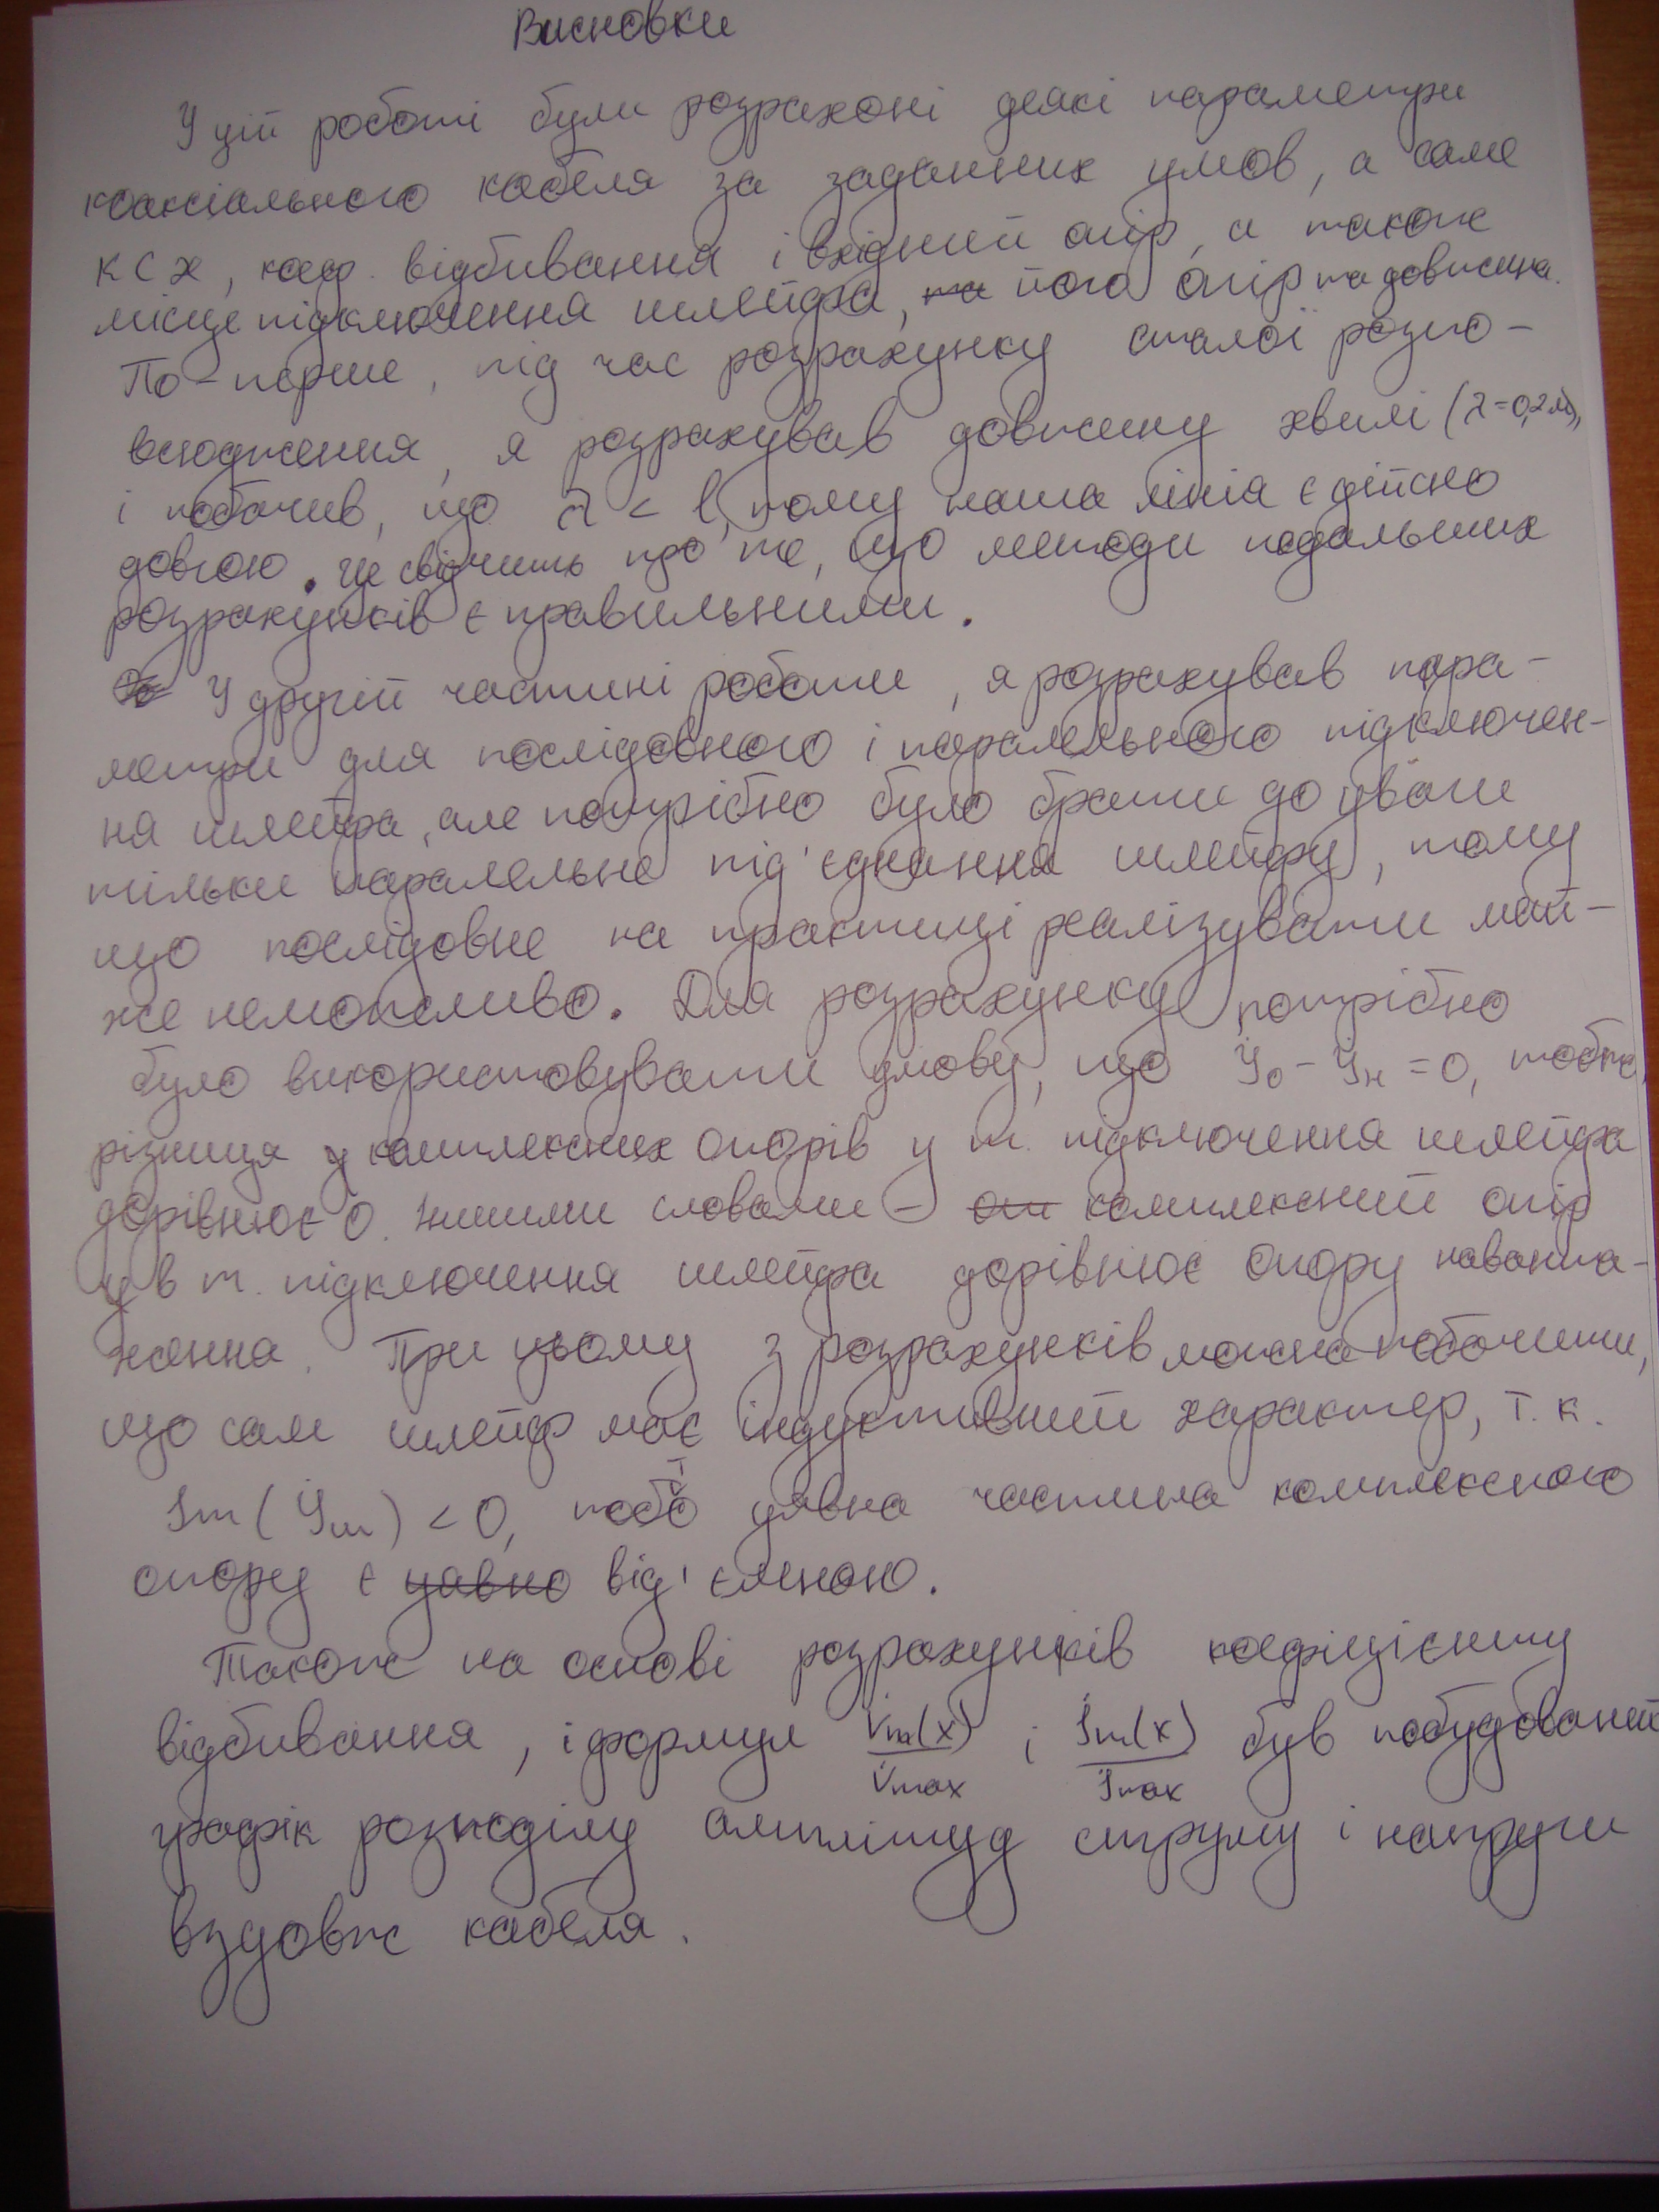 Висновки
У цій роботі були розрахоні деякі параметри
коаксіального кабеля за заданних умов, а саме
КСХ, коеф. відбивання і вхідний опір, а також
місце підключення шлейфа, та його опір та довжина.
По-перше, під час розрахунку сталої розпо-
всюдження, я розрахував довжину хвилі (λ=0,2м),
і побачив, що λ < l, тому наша лінія є дійсно
довгою. Це свідчить про те, що методи подальших
розрахунків є правильними.
У другій частині роботи, я розрахував пара-
метри для послідовного і паралельного підключен-
ня шлейфа, але потрібно було брати до уваги
тільки паралельне під'єднання шлейфу, тому
що послідовне на практиці реалізувати май-
же неможливо. Для розрахунку потрібно
було використовувати умову, що Y₀ - Yн = 0, тобто
різниця у комплексних опорів у т. підключення шлейфа
дорівнює 0. Іншими словами - оп комплексний опір
у в т. підключення шлейфа дорівнює опору наванта-
ження. При цьому з розрахунків можна побачити,
що сам шлейф має індуктивний характер, т.к.
Im(Yш) < 0, тобто уявна частина комплексного
опору є уявно від'ємною.
Також на основі розрахунків коефіцієнту
відбивання, і формул U̇m(x)/U̇max і İm(x)/İmax був побудований
графік розподілу амплітуд струму і напруги
вздовж кабеля.